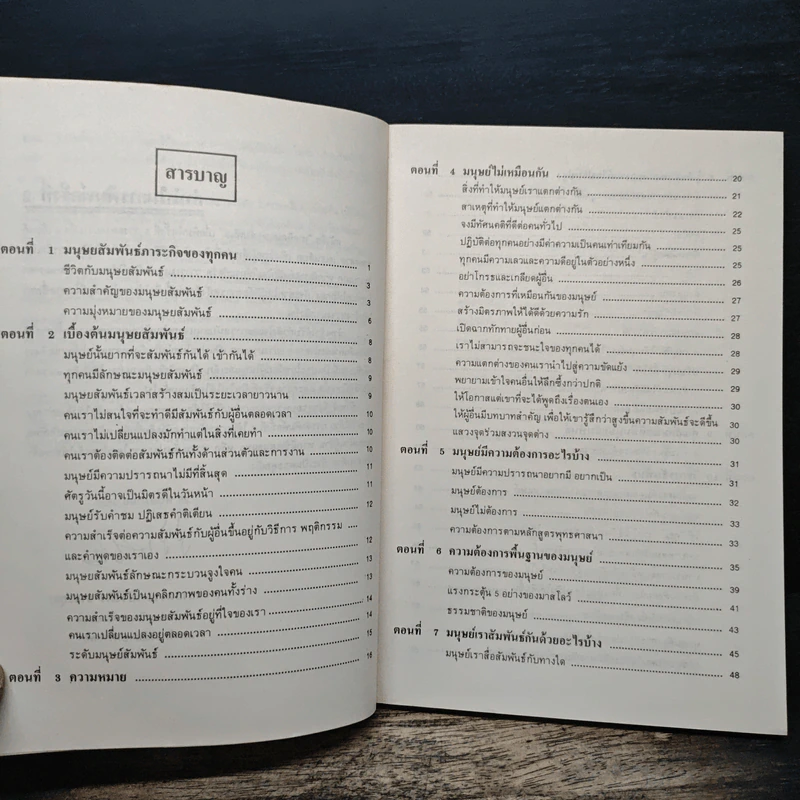 สารบาญ
ตอนที่ 1 มนุษยสัมพันธ์ภาระกิจของทุกคน 1
ชีวิตกับมนุษยสัมพันธ์ 3
ความสำคัญของมนุษยสัมพันธ์ 3
ความมุ่งหมายของมนุษยสัมพันธ์ 6
ตอนที่ 2 เบื้องต้นมนุษยสัมพันธ์ 8
มนุษย์นั้นยากที่จะสัมพันธ์กันได้ เข้ากันได้ 8
ทุกคนมีลักษณะมนุษยสัมพันธ์ 9
มนุษยสัมพันธ์เวลาสร้างสมเป็นระยะเวลายาวนาน 9
คนเราไม่สนใจที่จะทำดีมีสัมพันธ์กับผู้อื่นตลอดเวลา 10
คนเราไม่เปลี่ยนแปลงมักทำแต่ในสิ่งที่เคยทำ 10
คนเราต้องติดต่อสัมพันธ์กันทั้งด้านส่วนตัวและการงาน 10
มนุษย์มีความปรารถนาไม่มีที่สิ้นสุด 11
ศัตรูวันนี้อาจเป็นมิตรดีในวันหน้า 11
มนุษย์รับคำชม ปฏิเสธคำติเตียน 12
ความสำเร็จต่อความสัมพันธ์กับผู้อื่นขึ้นอยู่กับวิธีการ พฤติกรรม
และคำพูดของเราเอง 12
มนุษยสัมพันธ์ลักษณะกระบวนจูงใจคน 13
มนุษยสัมพันธ์เป็นบุคลิกภาพของคนทั้งร่าง 13
ความสำเร็จของมนุษยสัมพันธ์อยู่ที่ใจของเรา 14
คนเราเปลี่ยนแปลงอยู่ตลอดเวลา 14
ระดับมนุษย์สัมพันธ์ 15
ตอนที่ 3 ความหมาย 16
ตอนที่ 4 มนุษย์ไม่เหมือนกัน 20
สิ่งที่ทำให้มนุษย์เราแตกต่างกัน 21
สาเหตุที่ทำให้มนุษย์แตกต่างกัน 22
จงมีทัศนคติที่ดีต่อคนทั่วไป 25
ปฏิบัติต่อทุกคนอย่างมีค่าความเป็นคนเท่าเทียมกัน 25
ทุกคนมีความเลวและความดีอยู่ในตัวอย่างหนึ่ง 25
อย่าโกรธและเกลียดผู้อื่น 26
ความต้องการที่เหมือนกันของมนุษย์ 27
สร้างมิตรภาพให้ได้ดีด้วยความรัก 27
เปิดฉากทักทายผู้อื่นก่อน 28
เราไม่สามารถจะชนะใจของทุกคนได้ 28
ความแตกต่างของคนเรานำไปสู่ความขัดแย้ง 29
พยายามเข้าใจคนอื่นให้ลึกซึ้งกว่าปกติ 29
ให้โอกาสแต่เขาที่จะได้พูดถึงเรื่องตนเอง 30
ให้ผู้อื่นมีบทบาทสำคัญ เพื่อให้เขารู้สึกว่าสูงขึ้นความสัมพันธ์จะดีขึ้น 30
แสวงจุดร่วมสงวนจุดต่าง 30
ตอนที่ 5 มนุษย์มีความต้องการอะไรบ้าง 31
มนุษย์มีความปรารถนาอยากมี อยากเป็น 31
มนุษย์ต้องการ 32
มนุษย์ไม่ต้องการ 33
ความต้องการตามหลักสูตรพุทธศาสนา 33
ตอนที่ 6 ความต้องการพื้นฐานของมนุษย์ 35
ความต้องการของมนุษย์ 39
แรงกระตุ้น 5 อย่างของมาสโลว์ 41
ธรรมชาติของมนุษย์ 43
ตอนที่ 7 มนุษย์เราสัมพันธ์กันด้วยอะไรบ้าง 45
มนุษย์เราสื่อสัมพันธ์กับทางใด 48